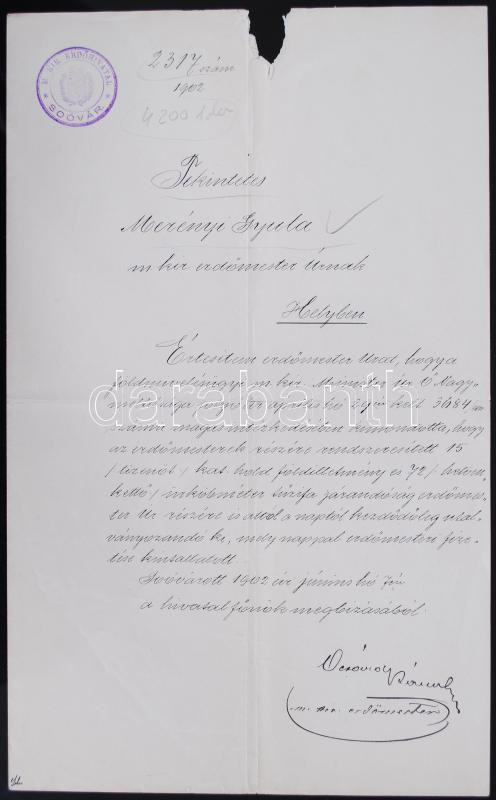 M. KIR. ERDŐHIVATAL
* SOÓVÁR *
2317 szám
1902
Tekintetes
Merényi Gyula
m kir erdőmester Úrnak
Helyben
Értesitem erdőmester Urat, hogy a
földmivelésügyi m. kir. Minister úr Ő Nagy-
méltósága április hó 24én kelt 3684
számú magas intézkedésében kimondotta, hogy
az erdőmesterek részére rendszeresitett 15
/tizenöt/ kat. hold földilletmény és 72/hetven-
kettő/ ürköbméter tűzifa járandóság erdőmes-
ter Úr részére is attól a naptól kezdődőleg utal-
ványozandó ki, mely nappal erdőmesteri fize-
tése kiutaltatott.
Soóvárott 1902 évi június hó 7én
a hivatal főnök megbizásából.
m. kir. erdőmester
darabanth